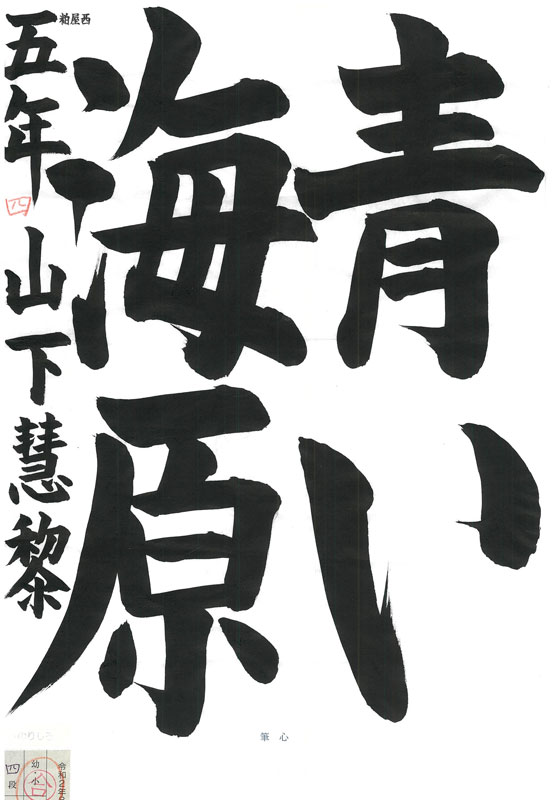 青い
海原
粕屋西
五年 山下慧黎
四
心筆
のりしろ
令和2年
幼・小
四段
合